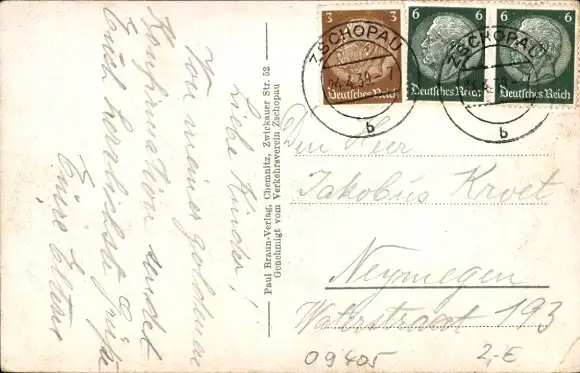 Liebe Kinder!
Von meiner goldenen
Konfirmation sendet
Euch herzlichste Grüße
Eure Eltern
Paul Braun-Verlag, Chemnitz, Zwickauer Str. 52
Genehmigt vom Verkehrsverein Zschopau
3 3
Deutsches Reich
6 6
Deutsches Reich
6 6
Deutsches Reich
ZSCHOPAU
4.39
b
ZSCHOPAU
b
Den Herr
Jakobus Kroet
Neymegen
Waterstraat 193
09405
2,-E